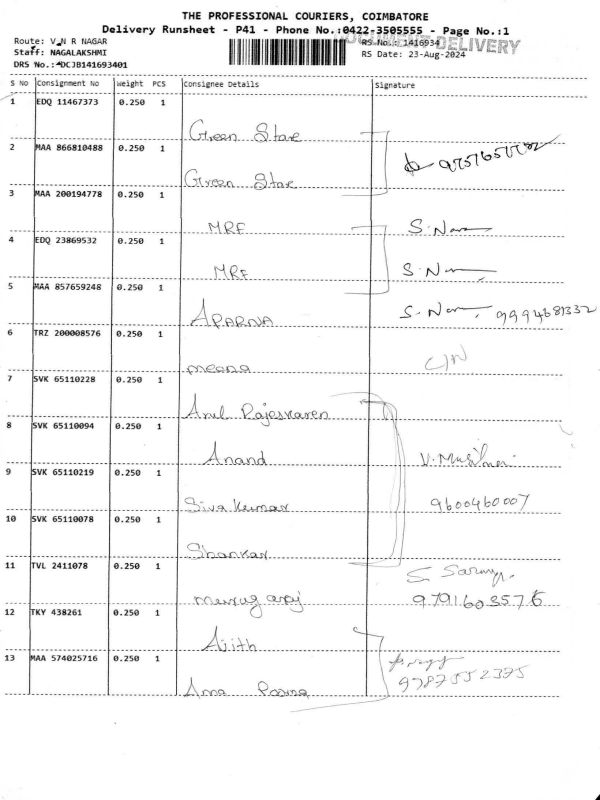 THE PROFESSIONAL COURIERS, COIMBATORE
Delivery Runsheet - P41 - Phone No.:0422-3505555 - Page No.:1
DOCUMENT DELIVERY
Route: V N R NAGAR
RS No.: 1416934
Staff: NAGALAKSHMI
RS Date: 23-Aug-2024
DRS No.: DCJB141693401
S No Consignment No Weight PCS Consignee Details Signature
1 EDQ 11467373 0.250 1 Green Star
2 MAA 866810488 0.250 1 Green Star
3 MAA 200194778 0.250 1 MRF S. Nar
4 EDQ 23869532 0.250 1 MRF S. Nar
5 MAA 857659248 0.250 1 APARNA S. Nar 9994681332
6 TRZ 200008576 0.250 1 meena
7 SVK 65110228 0.250 1 Arul
8 SVK 65110094 0.250 1 Anand
9 SVK 65110219 0.250 1 Siva Kumar 9600460007
10 SVK 65110078 0.250 1 Shankar
11 TVL 2411078 0.250 1 9791603576
12 TKY 438261 0.250 1 Ajith
13 MAA 574025716 0.250 1 9787552375